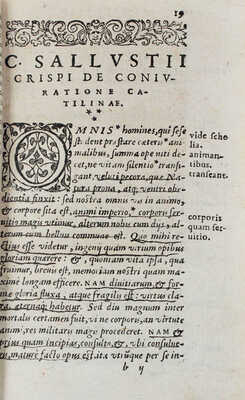 19
C. SALLVSTII
CRISPI DE CONIV-
RATIONE CA-
TILINAE.
OMNIS* homines, qui sese
student præstare cæteris* ani-
malibus, summa ope niti de-
cet, ne vitam silentio* trans-
igant, veluti pecora, quæ Na-
tura prona, atq; ventri obe-
dientia finxit: sed nostra omnis vis in animo,
& corpore sita est, animi imperio,* corporis ser-
uitio magis vtimur, alterum nobis cum dijs, al-
terum cum belluis commune est. Quo mihi re-
ctius esse videtur, ingenij quàm virium opibus
gloriam quærere: &, quoniam vita ipsa, qua
fruimur, breuis est, memoriam nostri quàm ma-
xime longam efficere. NAM diuitiarum, & for-
mæ gloria fluxa, atque fragilis est: virtus cla-
ra, æternaq; habetur. Sed diu magnum inter
mortalis certamen fuit, vi ne corporis, an virtute
animi, res militaris magis procederet. NAM &
prius quàm incipias, consulto, &, vbi consulue-
ris, maturè facto opus est. ita vtrunque per se in-
b ij
vide scho
lia.
animan-
tibus.
transeant.
corporis
quam ser-
uitio.